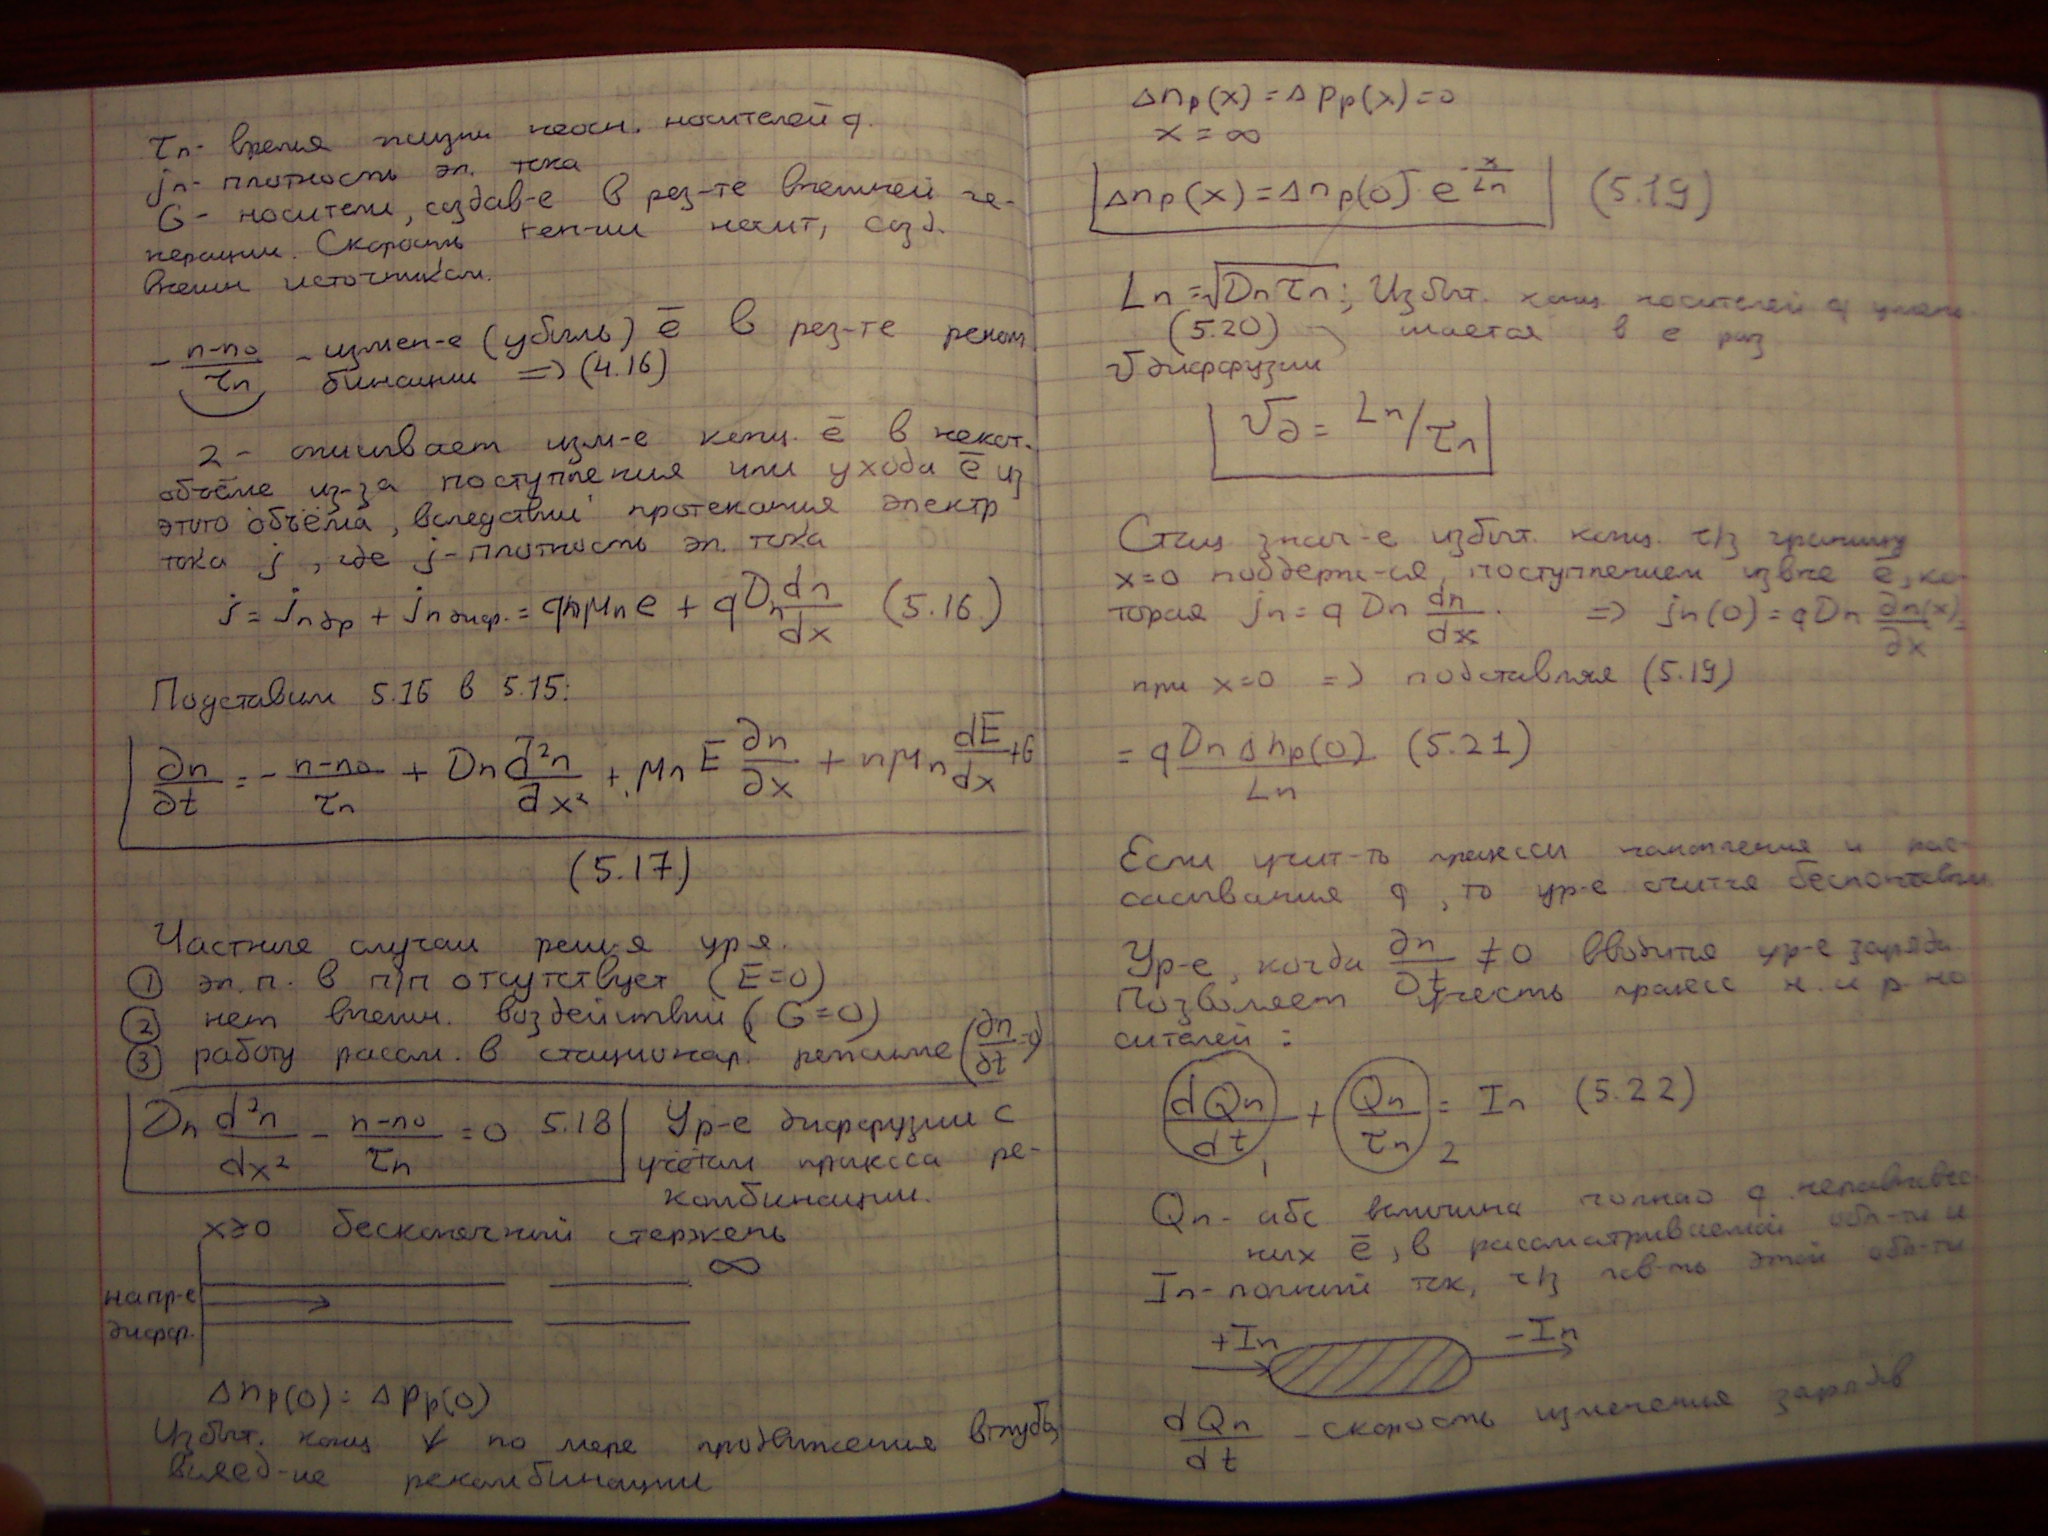 τn - время жизни неосн. носителей q.
jn - плотность эл. тока
G - носители, создав-е в рез-те внешней ге-
нерации. Скорость ген-ии носит, созд.
внешн источником.
- (n-n₀)/τn - измен-е (убыль) ē в рез-те реком
бинации => (4.16)
2 - описывает изм-е конц. ē в некот.
объёме из-за поступления или ухода ē из
этого объёма, вследствии протекания электр
тока j, где j - плотность эл. тока
j = jn др + jn диф. = qnμnE + qDn dn/dx (5.16.)
Подставим 5.16 в 5.15:
∂n/∂t = - (n-n₀)/τn + Dn d²n/dx² + μn E ∂n/∂x + nμn dE/dx + G
(5.17)
Частные случаи реш-я ур-я.
① эл. п. в п/п отсутствует (E=0)
② нет внешн. воздействий (G=0)
③ работу рассм. в стационар. режиме (∂n/∂t=0)
Dn d²n/dx² - (n-n₀)/τn = 0 5.18 Ур-е диффузии с
учётом процесса ре-
комбинации.
x≥0 бесконечный стержень
∞
напр-е
дифф.
Δnp(0) = Δpp(0)
Избыт. конц ↓ по мере продвижения вглубь
вслед-ие рекомбинации
Δnp(x) = Δpp(x) = 0
x = ∞
Δnp(x) = Δnp(0) · e^(-x/Ln) (5.19)
Ln = √(Dn τn); Избыт. конц носителей q умень
(5.20) шается в e раз
V диффузии
Vд = Ln/τn
Стац знач-е избыт. конц. ч/з границу
x=0 поддерж-ся, поступлением извне ē, ко-
торая jn = q Dn dn/dx. => jn(0) = qDn ∂n(x)/∂x =
при x=0 => подставляя (5.19)
= q Dn Δnp(0)/Ln (5.21)
Если учит-ть процессы накопления и рас-
сасывания q, то ур-е счится
Ур-е, когда ∂n/∂t ≠ 0 вводится ур-е заряда
Позволяет учесть процесс н. и р. но
сителей:
dQn/dt 1 + Qn/τn 2 = In (5.22)
Qn - абс величина полного q неравновес
ных ē, в рассматриваемой обл-ти и
In - полный ток, ч/з пов-ть этой обл-ти
+In -In
dQn/dt - скорость изменения зарядов